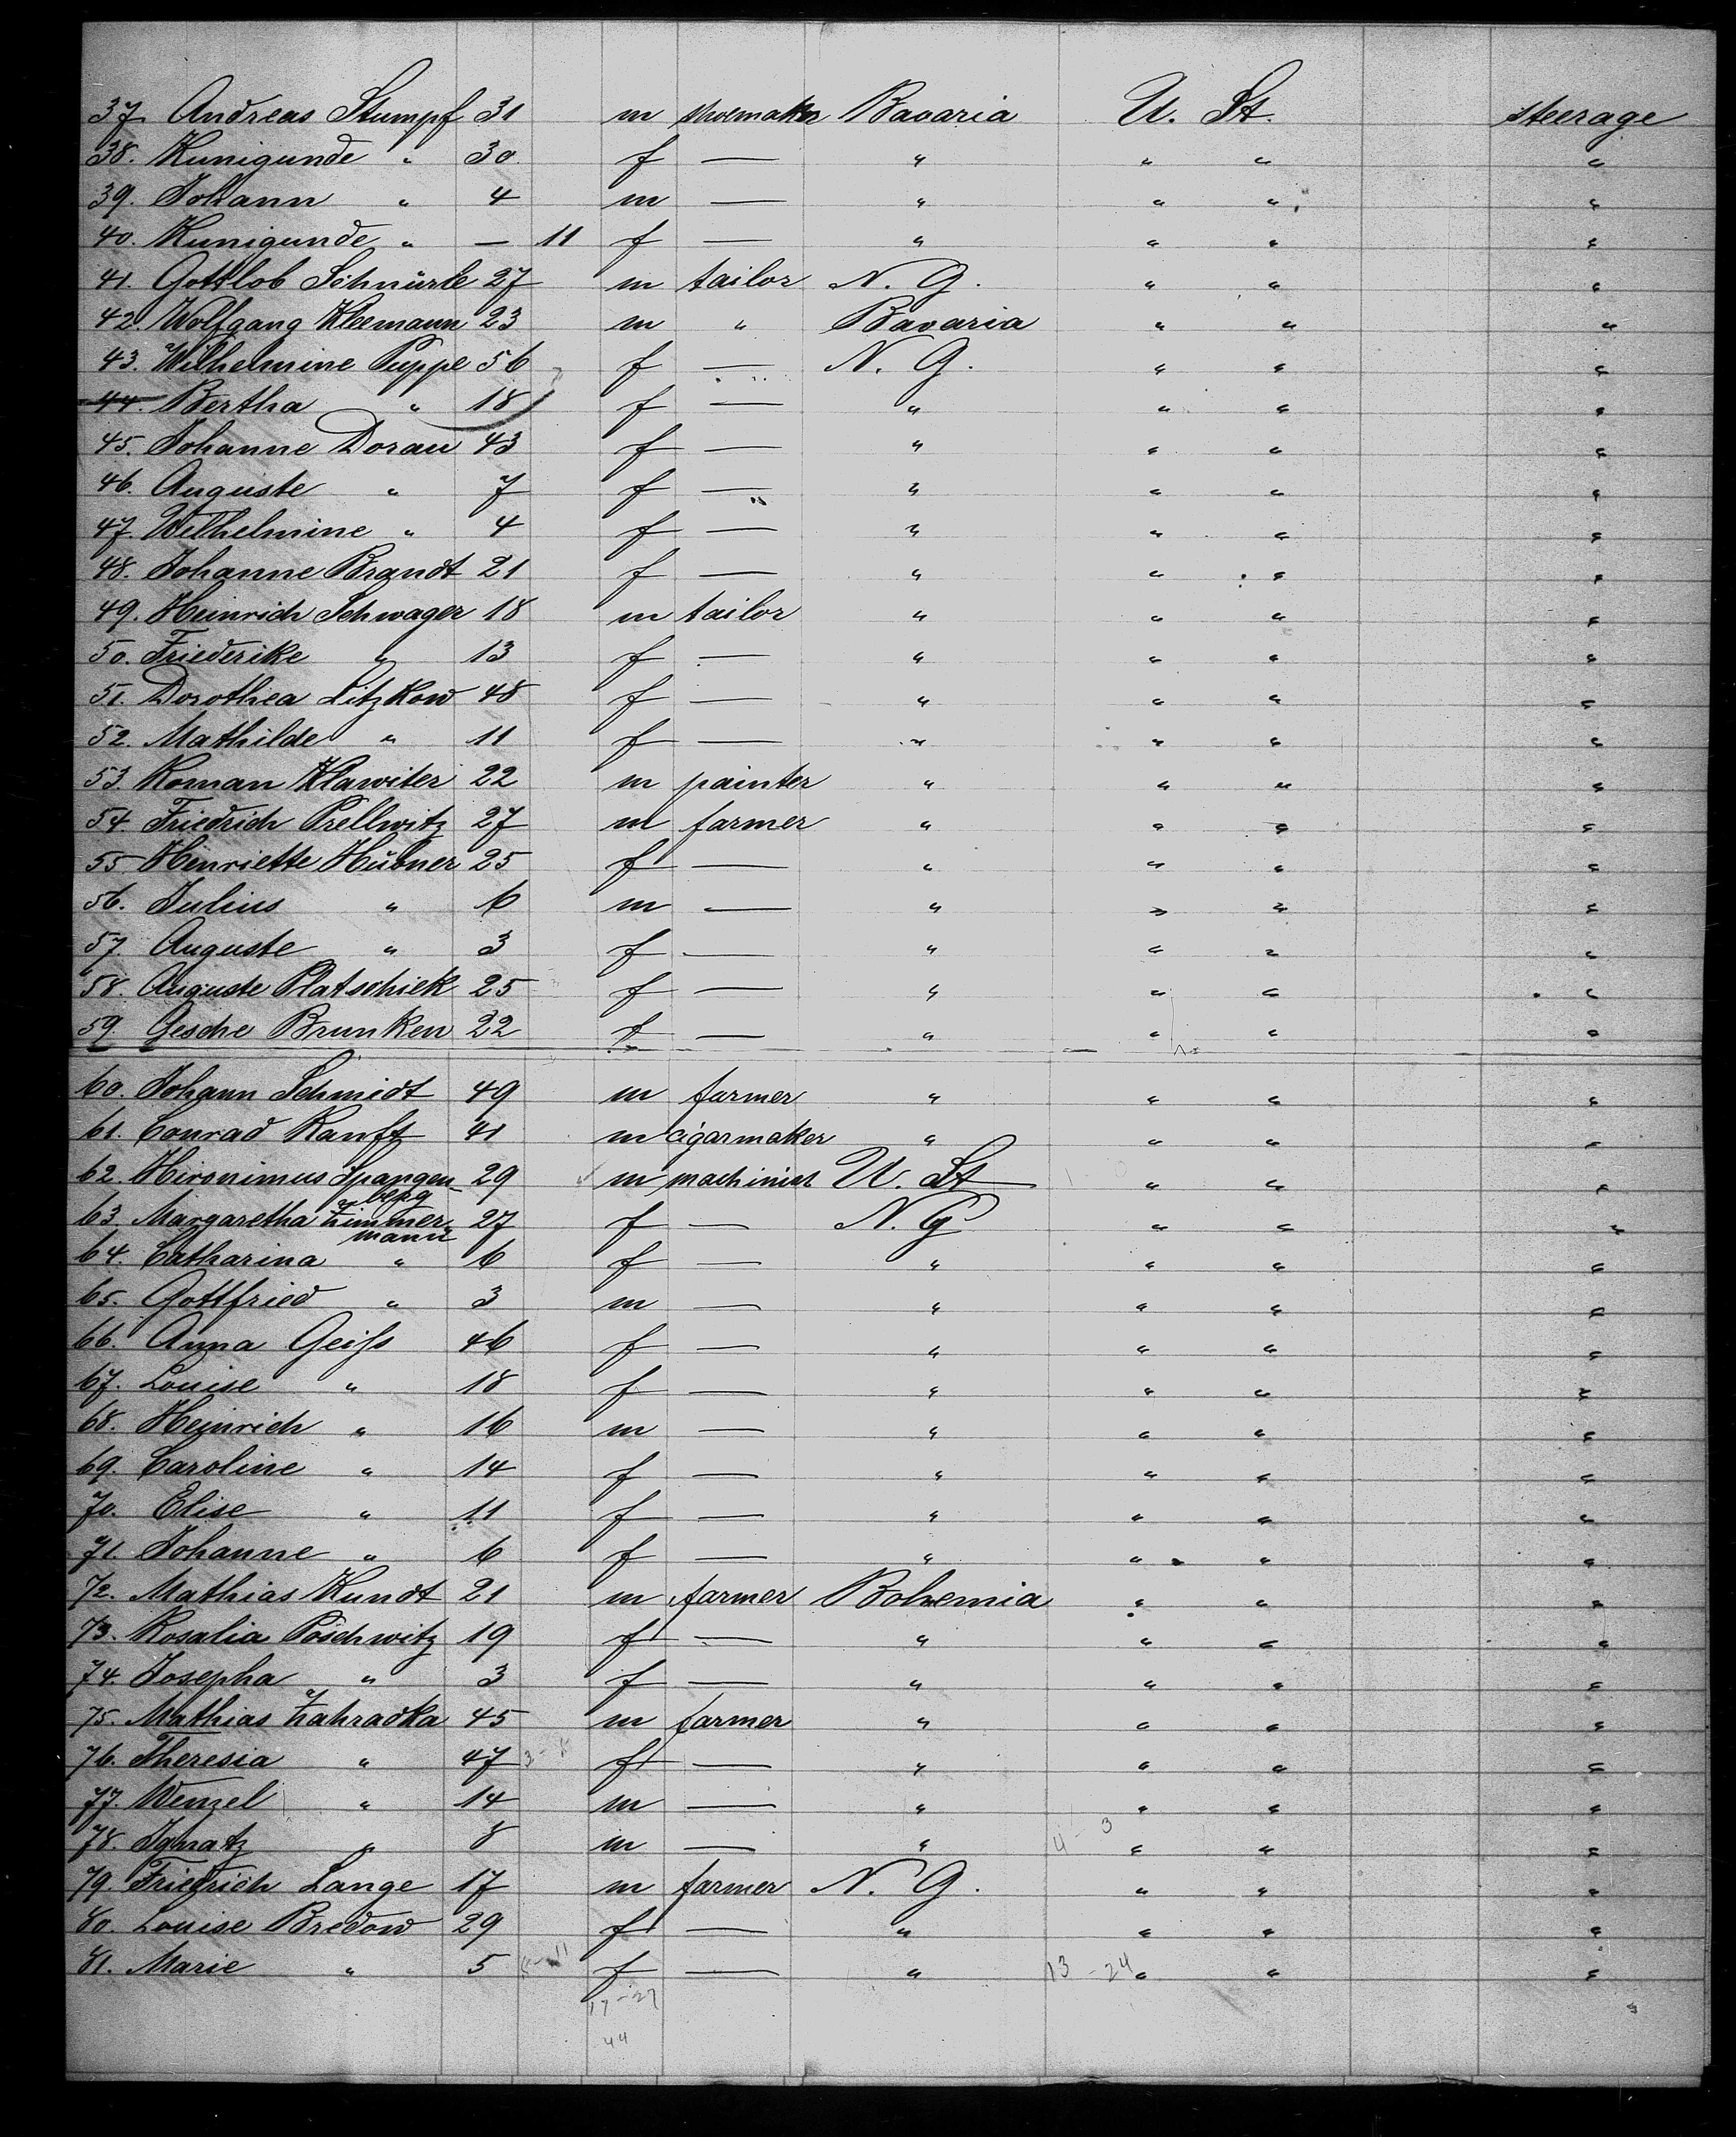 37. Andreas Stumpf 31 m shoemaker Bavaria U. St. steerage
38. Kunigunde " 30 f — " " " "
39. Johann " 4 m — " " " "
40. Kunigunde " — 11 f — " " " "
41. Gottlob Schnürle 27 m tailor N. G. " " "
42. Wolfgang Kleemann 23 m " Bavaria " " "
43. Wilhelmine Puppe 56 f — N. G. " " "
44. Bertha " 18 f — " " " "
45. Johanne Dorau 43 f — " " " "
46. Auguste " 7 f — " " " "
47. Wilhelmine " 4 f — " " " "
48. Johanne Brandt 21 f — " " " "
49. Heinrich Schwager 18 m tailor " " " "
50. Friederike " 13 f — " " " "
51. Dorothea Litzkow 48 f — " " " "
52. Mathilde " 11 f — " " " "
53. Roman Klawiter 22 m painter " " " "
54. Friedrich Prellwitz 27 m farmer " " " "
55 Henriette Hübner 25 f — " " " "
56. Julius " 6 m — " " " "
57. Auguste " 3 f — " " " "
58. Auguste Platschiek 25 f — " " " "
59. Gesche Brunken 22 f — " " " "
60. Johann Schmidt 49 m farmer " " " "
61. Conrad Ranft 41 m cigarmaker " " " "
62. Hironimus Spangen- 29 m machinist U. St " " "
berg
63. Margaretha Zimmer- 27 f — N. G " " "
mann
64. Catharina " 6 f — " " " "
65. Gottfried " 3 m — " " " "
66. Anna Geiſs 46 f — " " " "
67. Louise " 18 f — " " " "
68. Heinrich " 16 m — " " " "
69. Caroline " 14 f — " " " "
70. Elise " 11 f — " " " "
71. Johanne " 6 f — " " " "
72. Mathias Kundt 21 m farmer Bohemia " " "
73. Rosalia Pöschwitz 19 f — " " " "
74. Josepha " 3 f — " " " "
75. Mathias Zahradka 45 m farmer " " " "
76. Theresia " 47 f — " " " "
77. Wenzel " 14 m — " " " "
78. Ignatz " 8 m — " 4 - 3 " " "
79. Friedrich Lange 17 m farmer N. G. " " "
80. Louise Bredow 29 f — " " " "
81. Marie " 5 f — " 13 - 24 " " "
17 - 27
44